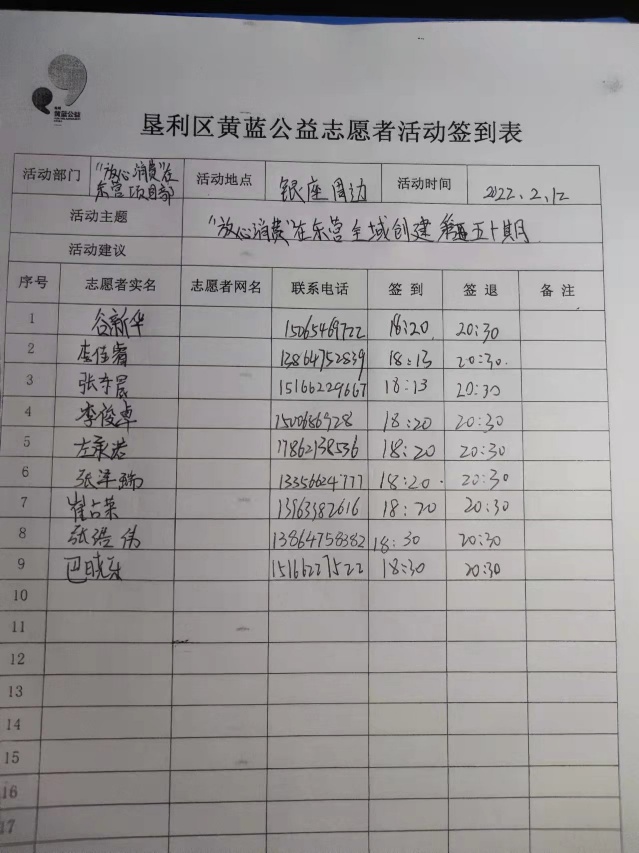 黄蓝公益
垦利区黄蓝公益志愿者活动签到表
活动部门 "放心消费"在东营项目部 活动地点 银座周边 活动时间 2022.2.12
活动主题 "放心消费"在东营全域创建第五十期
活动建议
序号 志愿者实名 志愿者网名 联系电话 签到 签退 备注
1 谷新华 15065469722 18:20 20:30
2 李佳睿 13864752839 18:13 20:30.
3 张 15166229667 18:13 20:30
4 李俊卓 1500686928 18:20 20:30
5 左承浩 17862138536 18:20 20:30
6 张泽瑞 13356624777 18:20. 20:30
7 崔占荣 13963382616 18:20 20:30
8 张浩伟 13864758382 18:30 20:30
9 巴晓东 15166227522 18:30 20:30
10
11
12
13
14
15
16
17